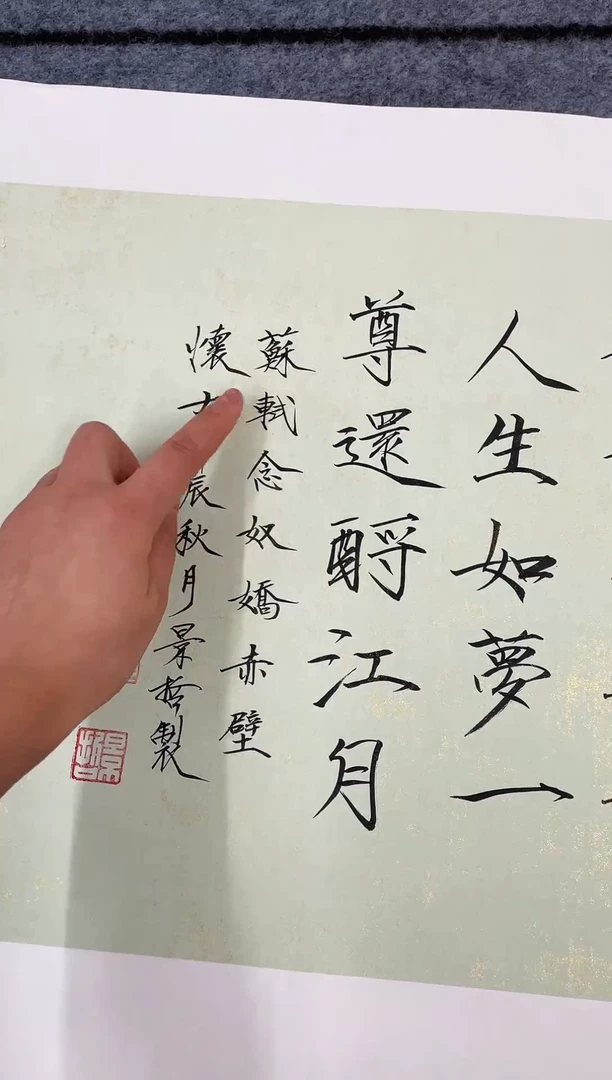 人生如夢一
尊還酹江月
蘇軾念奴嬌赤壁
懷古 辰秋月景哲製